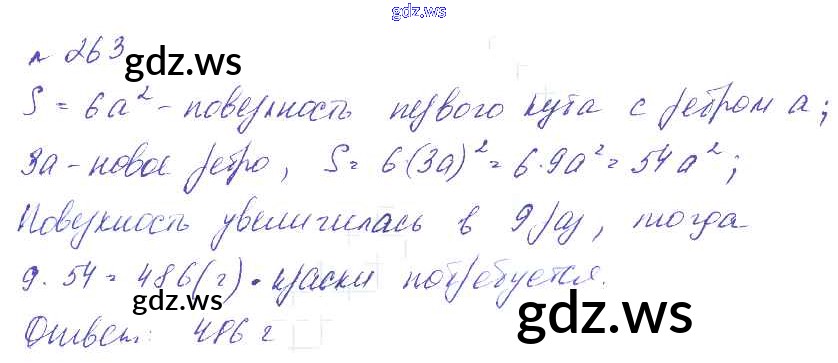 gdz.ws
№ 263
gdz.ws
S = 6a² - поверхность первого куба с ребром a;
3a - новое ребро, S = 6(3a)² = 6·9a² = 54a²;
Поверхность увеличилась в 9 раз, тогда
9·54 = 486(г) - краски потребуется.
gdz.ws
gdz.ws
Ответ: 486 г